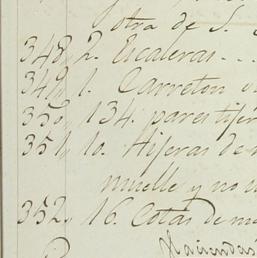 otra de S.
348, 2. Escaleras - - -
349, 1. Carreton
350, 134. pares tijer
351, 10. Hiseras de
muelle y no
352, 16. Cotas de m
Haciendas